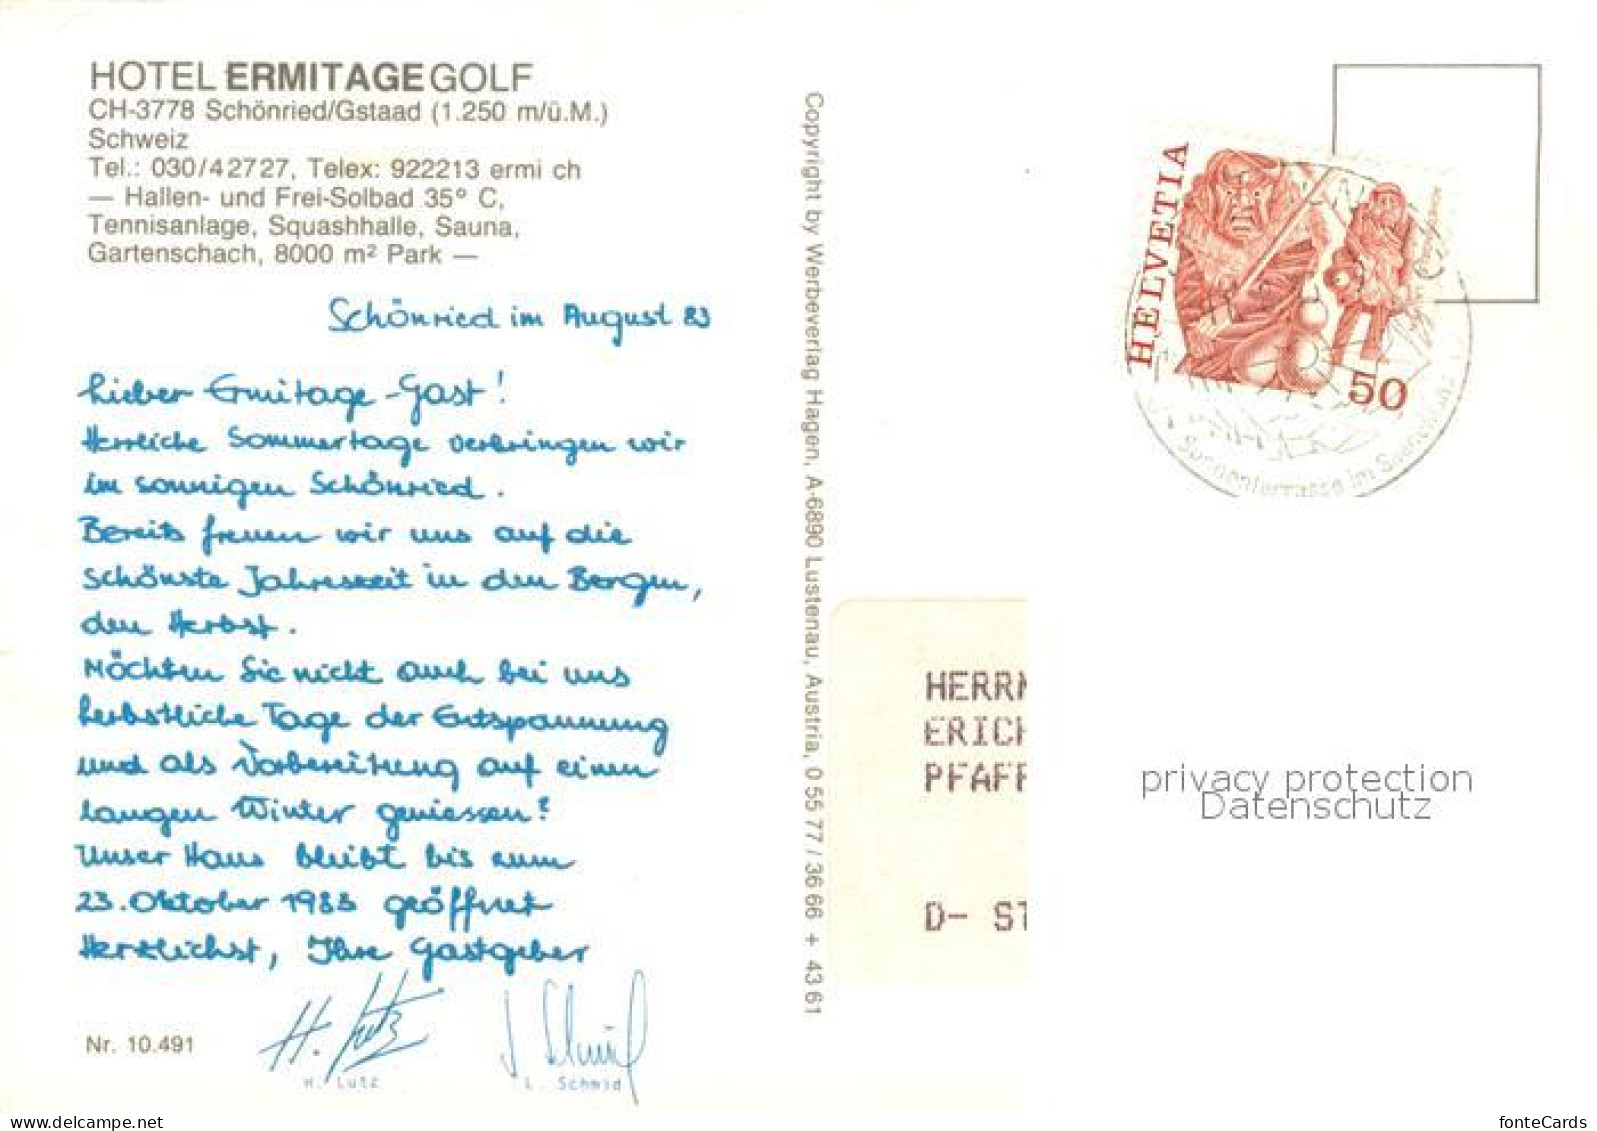 HOTEL ERMITAGE GOLF
CH-3778 Schönried/Gstaad (1.250 m/ü.M.)
Schweiz
Tel.: 030/42727, Telex: 922213 ermi ch
— Hallen- und Frei-Solbad 35° C,
Tennisanlage, Squashhalle, Sauna,
Gartenschach, 8000 m² Park —
Schönried im August 83
Lieber Ermitage-Gast!
Herrliche Sommertage verbringen wir
im sonnigen Schönried.
Bereits freuen wir uns auf die
schönste Jahreszeit in den Bergen,
den Herbst.
Möchten Sie nicht auch bei uns
herbstliche Tage der Entspannung
und als Vorbereitung auf einen
langen Winter geniessen?
Unser Haus bleibt bis zum
23. Oktober 1983 geöffnet
Herzlichst, Ihre Gastgeber
H. Lutz
L. Schmid
H. Lutz
L. Schmid
Nr. 10.491
Copyright by Werbeverlag Hagen, A-6890 Lustenau, Austria, 0 55 77 / 36 66 + 43 61
HELVETIA
50
Sonnenterrasse im Saanenland
HERRN
ERICH
PFAFF
D- ST
privacy protection
Datenschutz
fonteCards